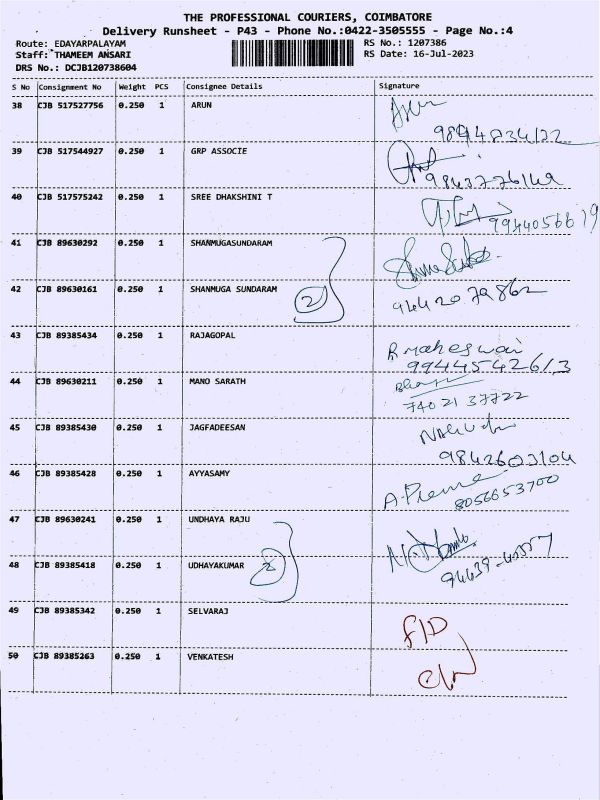 THE PROFESSIONAL COURIERS, COIMBATORE
Delivery Runsheet - P43 - Phone No.:0422-3505555 - Page No.:4
Route: EDAYARPALAYAM RS No.: 1207386
Staff: THAMEEM ANSARI RS Date: 16-Jul-2023
DRS No.: DCJB120738604
S No Consignment No Weight PCS Consignee Details Signature
38 CJB 517527756 0.250 1 ARUN
39 CJB 517544927 0.250 1 GRP ASSOCIE
9843776149
40 CJB 517575242 0.250 1 SREE DHAKSHINI T
9944056619
41 CJB 89630292 0.250 1 SHANMUGASUNDARAM
42 CJB 89630161 0.250 1 SHANMUGA SUNDARAM 2
9442079862
43 CJB 89385434 0.250 1 RAJAGOPAL
R maheswari
9944542613
44 CJB 89630211 0.250 1 MANO SARATH
7402137722
45 CJB 89385430 0.250 1 JAGFADEESAN
9842603104
46 CJB 89385428 0.250 1 AYYASAMY
A. Prema
8056653700
47 CJB 89630241 0.250 1 UNDHAYA RAJU
48 CJB 89385418 0.250 1 UDHAYAKUMAR 2
49 CJB 89385342 0.250 1 SELVARAJ
F/D
50 CJB 89385263 0.250 1 VENKATESH